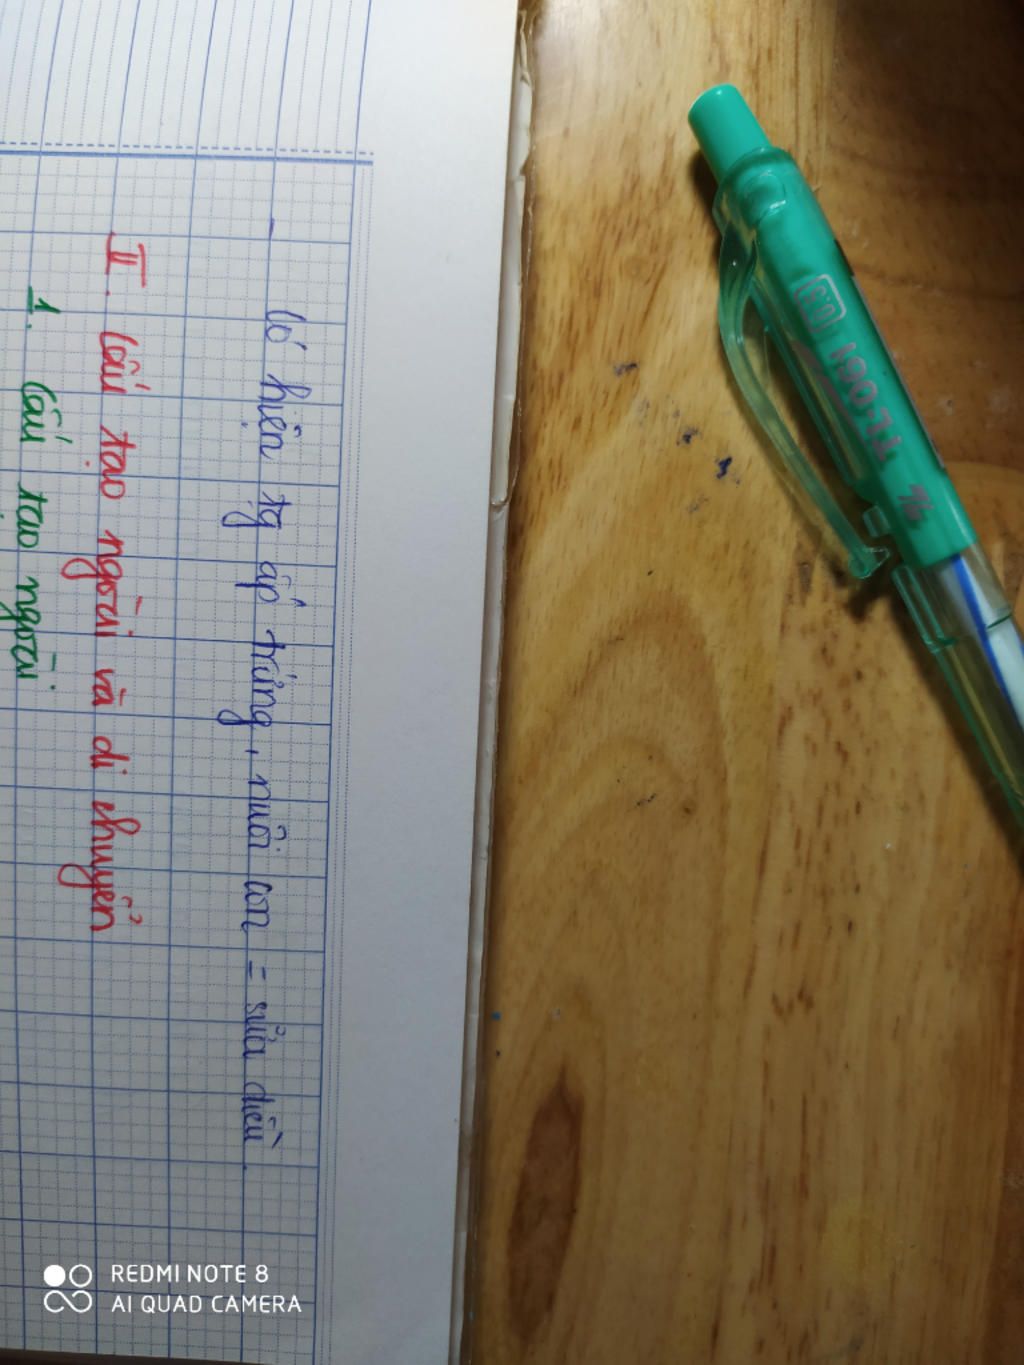 - Có hiện tg ấp trứng, nuôi con = sữa diều.
II. Cấu tạo ngoài và di chuyển
1. Cấu tạo ngoài
TL-061
REDMI NOTE 8
AI QUAD CAMERA